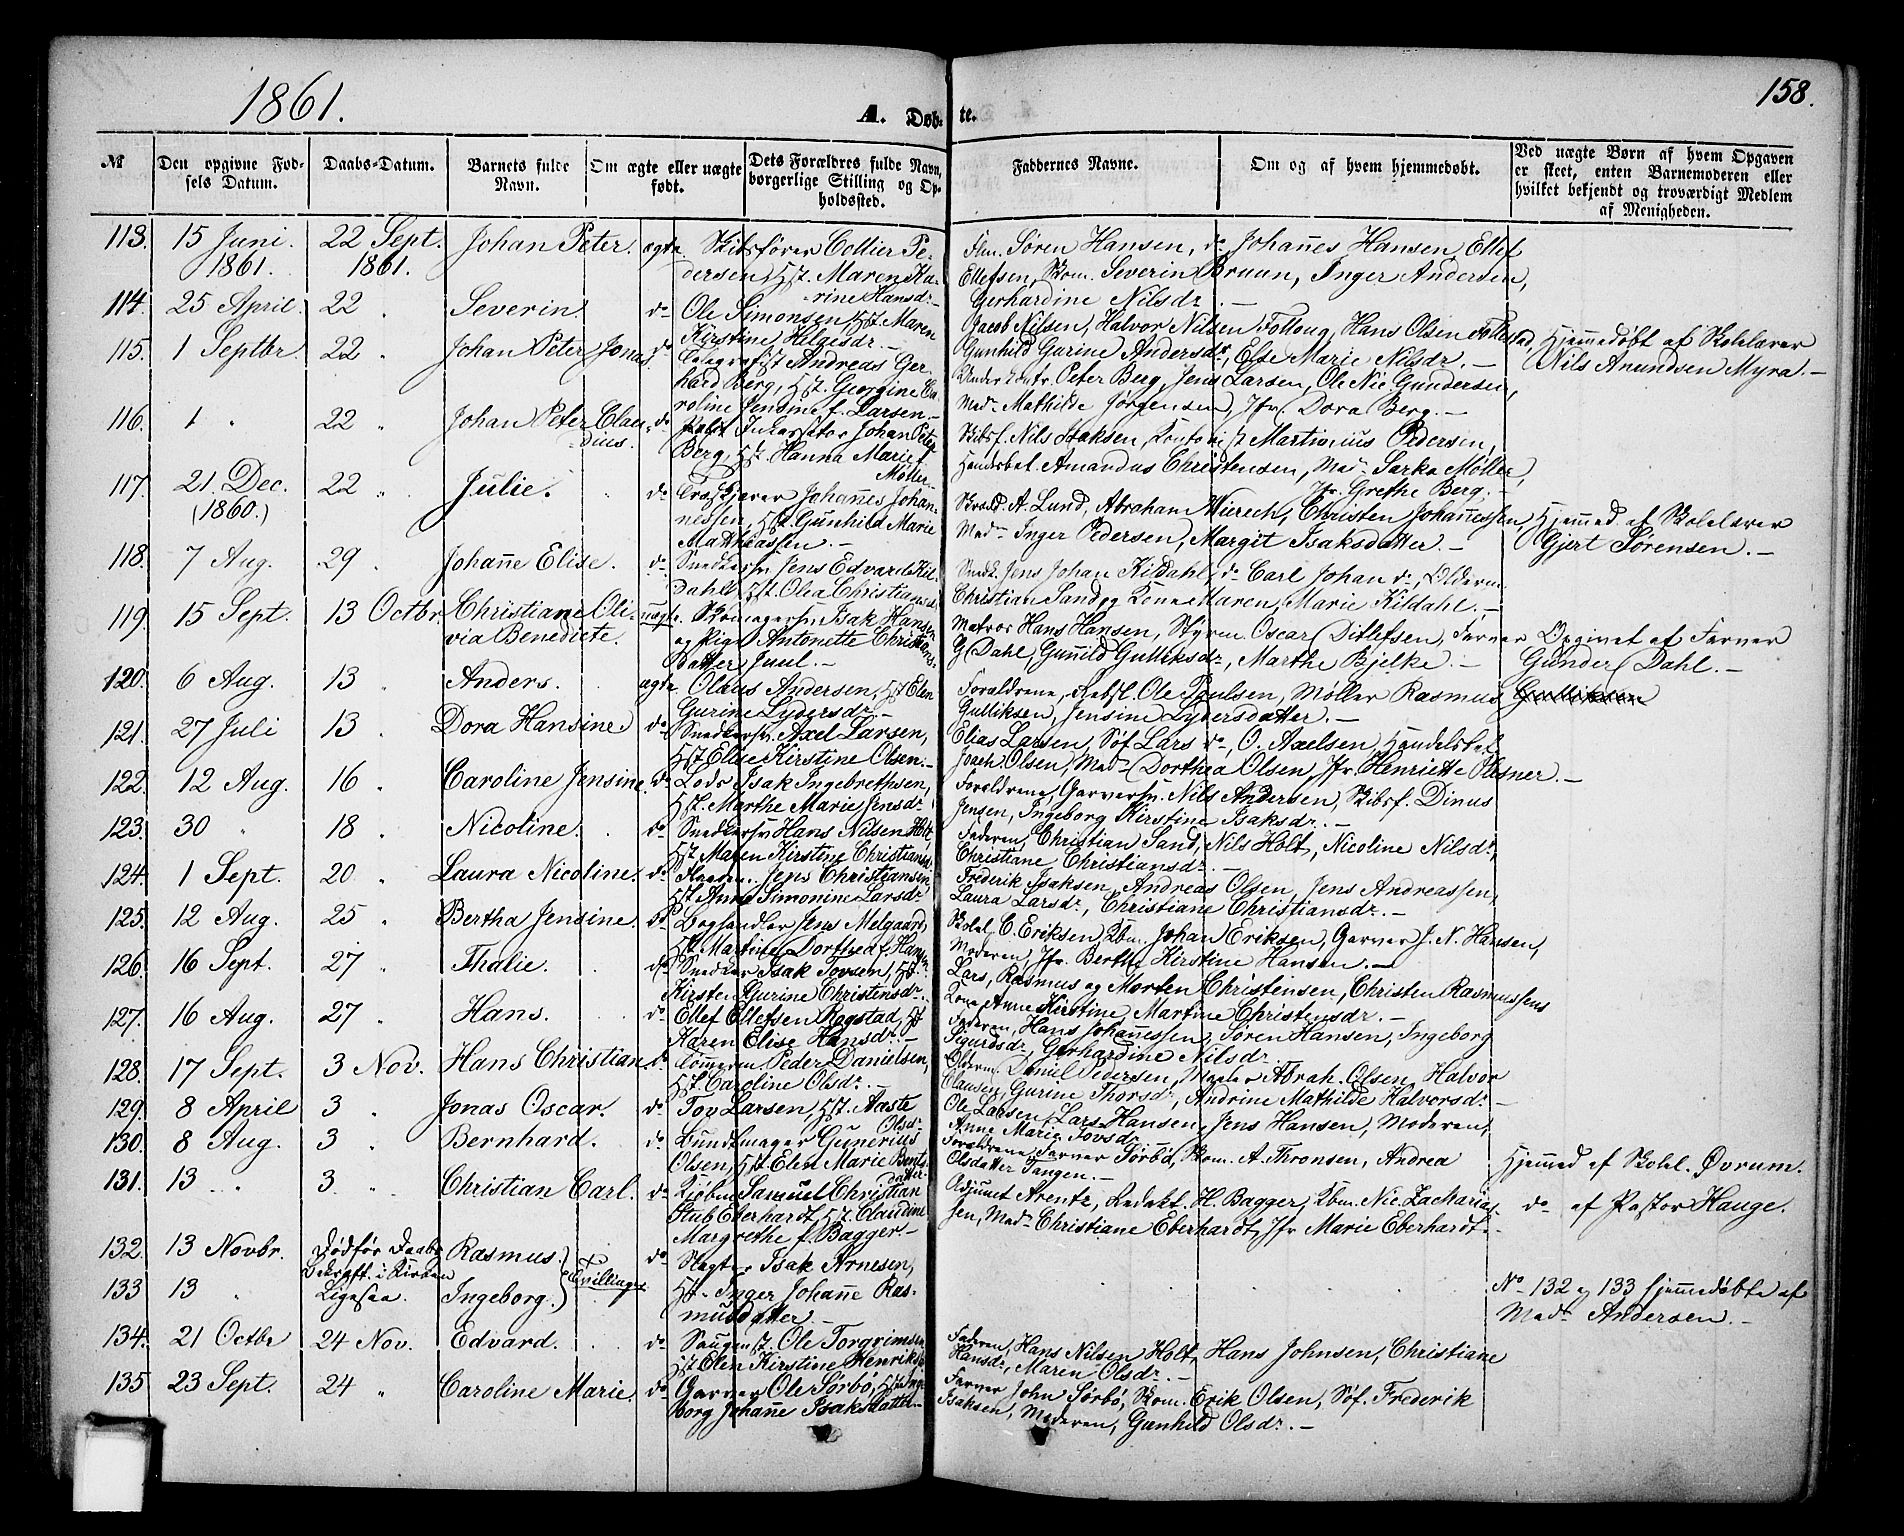 1861.
A. Døb-te.
158.
№
Den opgivne Fødsels Datum.
Daabs-Datum.
Barnets fulde Navn.
Om ægte eller uægte født.
Dets Forældres fulde Navn, borgerlige Stilling og Opholdssted.
Faddernes Navne.
Om og af hvem hjemmedøbt.
Ved uægte Børn af hvem Opgaven er skeet, enten Barnemoderen eller hvilket bekjendt og troværdigt Medlem af Menigheden.
113. 15 Juni. 1861. 22 Sept. 1861. Johan Peter. ægte. Skibsfører Collier Pedersen, Hst. Maren Karine Hansdr.—
Søren Hansen, do Johañes Hansen, Ellef
Ellefsen, Skom. Severin Bruun, Inger Andersen,
Gerhardine Nilsdr.—
114. 25 April. 22 " Severin. do Ole Simonsen, Hst. Maren Kirstine Helgesdr.—
Jacob Nilsen, Halvor Nilsen Folloug, Hans Olsen
Gunhild Gurine Andersdr, Else Marie Nilsdr.—
115. 1 Septbr. 22 " Johan Peter Jonas. do Telegrafist Andreas Gerhard Berg, Hst. Georgine Caroline Jensine f. Larsen.—
Peter Berg, Jens Larsen, Ole Nic. Gundersen,
Madm Mathilde Jørgensen, Jfr. Dora Berg.—
Hjemmedøbt af Skolelærer
Nils Anundsen Myra.—
116. 1 " 22 " Johan Peter Claudius. do Inkassator Johan Peter Berg, Hst. Hanna Marie f. Møller.
Skibsf. Nils Isaksen, Kontorist Martinius Pedersen,
Handsbet. Amandus Christensen, Madm Sarka Møller,
Jfr. Grethe Berg.—
117. 21 Dec. (1860.) 22 " Julie. do Johañes Johannessen, Hst. Gunhild Marie Mathiassen.—
A. Lund, Abraham Wierech, Christen Johañessen,
Madm Inger Pedersen, Margit Isaksdatter.—
Hjemmed. af Skolelærer
Gjert Sørensen.—
118. 7 Aug. 29 " Johañe Elise. do Snedkersv. Jens Edvard Kildahl, Hst. Olea Christiansdr
Snedk. Jens Johan Kildahl, do Carl Johan do, Olderm.
Christian Sand og Kone Maren, Marie Kildahl.—
119. 15 Sept. 13 Octbr. Christiane Olivia Benedicte. uægte. Skomagersv. Isak Hansen og Pige Antonette Christiansdatter Juul.—
Matros Hans Hansen, Styrm. Oscar Ditlefsen, Farver
G. Dahl, Guñild Gulliksdr, Marthe Bjelke.—
Opgivet af Farver
Gunder Dahl.—
120. 6 Aug. 13 " Anders. ægte. Olaus Andersen, Hst. Elen Gurine Lydersdr.—
Forældrene, Rebsl. Ole Poulsen, Møller Rasmus Gulliksen
Gulliksen, Jensine Lydersdatter.—
121. 27 Juli 13 " Dora Hansine. do Snedkersv. Axel Larsen, Hst. Elise Kirstine Olsen.—
Elias Larsen, Søf. Lars do, O. Axelsen, Handelsbet.
Joach. Olsen, Madm Dorthea Olsen, Jfr. Henriette Plesner.—
122. 12 Aug. 16 " Caroline Jensine. do Lods Isak Ingebrethsen, Hst. Marthe Marie Jensdr.
Forældrene, Garversv. Nils Andersen, Skibsf. Dinus
Jensen, Ingeborg Kirstine Isaksdr.—
123. 30 " 18 " Nicoline. do Snedkersv. Hans Nilsen Holt, Hst. Maren Kirstine Christiansdr
Faderen, Christian Sand, Nils Holt, Nicoline Nilsdr,
Christiane Christiansdr.—
124. 1 Sept. 20 " Laura Nicoline. do Jens Christiansen, Hst. Anne Simonine Larsdr
Frederik Isaksen, Andreas Olsen, Jens Andreassen,
Laura Larsdr, Christiane Christiansdr.—
125. 12 Aug. 25 " Bertha Jensine. do Boghandler Jens Melgaard, Hst. Martine Dorthea f. Hansen
Skolel. C. Eriksen, Kbm. Johan Eriksen, Garver J. N. Hansen,
Moderen, Jfr. Berthe Kirstine Hansen.—
126. 16 Sept. 27 " Thalie. do Snedker Isak Tovsen, Hst. Kirsten Gurine Christensdr.
Lars, Rasmus og Morten Christensen, Christen Rasmussens
Kone Anne Kirstine, Martine Christensdr.—
127. 16 Aug. 27 " Hans. do Ellef Ellefsen Rogstad, Hst Karen Elise Hansdr.—
Faderen, Hans Johañessen, Søren Hansen, Ingeborg
Sigurdsdr, Gerhardine Nilsdr.
128. 17 Sept. 3 Nov. Hans Christian. do Tømmerm. Peder Danielsen, Hst. Caroline Olsdr.—
Olderm. Daniel Pedersen, Abrah. Olsen, Halvor
Clausen, Gurine Thorsdr, Andrine Mathilde Halvorsdr.—
129. 8 April 3 " Jonas Oscar. do Tov Larsen, Hst. Aaste Olsdr.
Ole Larsen, Lars Hansen, Jens Hansen, Moderen,
Anne Marie Tovsdr.
130. 8 Aug. 3 " Bernhard. do Bundtmager Gunerius Olsen, Hst. Elen Marie Bentsdatter.
Forældrene, Farver Sørbø, Skom. A. Thronsen, Andrea
Olsdatter Tangen.—
Hjemmed af Skolel. Øvrum.
131. 13 " 3 " Christian Carl. do Kjøbm. Samuel Christian Stub Eberhardt, Hst. Claudine Margrethe f. Bagger.—
Adjunct Arentz, Redakt. H. Bagger, Kbm. Nic. Zachariassen, Madm Christiane Eberhardt, Jfr Marie Eberhardt.—
do af Pastor Hauge.
132. 13 Novbr. Død før Daabs Bekræft. i Kirken Rasmus. } Tvillinger do Slagter Isak Arnesen,
133 13 " Ligesaa. Ingeborg. Hst. Inger Johañe Rasmusdatter.—
No 132 og 133 hjemmedøbte af
Madm Andersen.—
134. 21 Octbr 24 Nov. Edvard. do Ole Torgrimsen, Hst. Elen Kirstine Henriksdr
Faderen, Hans Nilsen Holt, Hans Johnsen, Christiane
Hansdr, Maren Olsdr.—
135 23 Sept. 24 " Caroline Marie. do Garver Ole Sørbø, Hst. Ingeborg Johañe Isaksdatter.—
Farver John Sørbø, Skom. Erik Olsen, Søf. Frederik
Isaksen, Moderen, Gunhild Olsdr.—